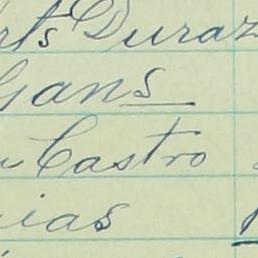 rts Duraz
Gans
Castro
ias